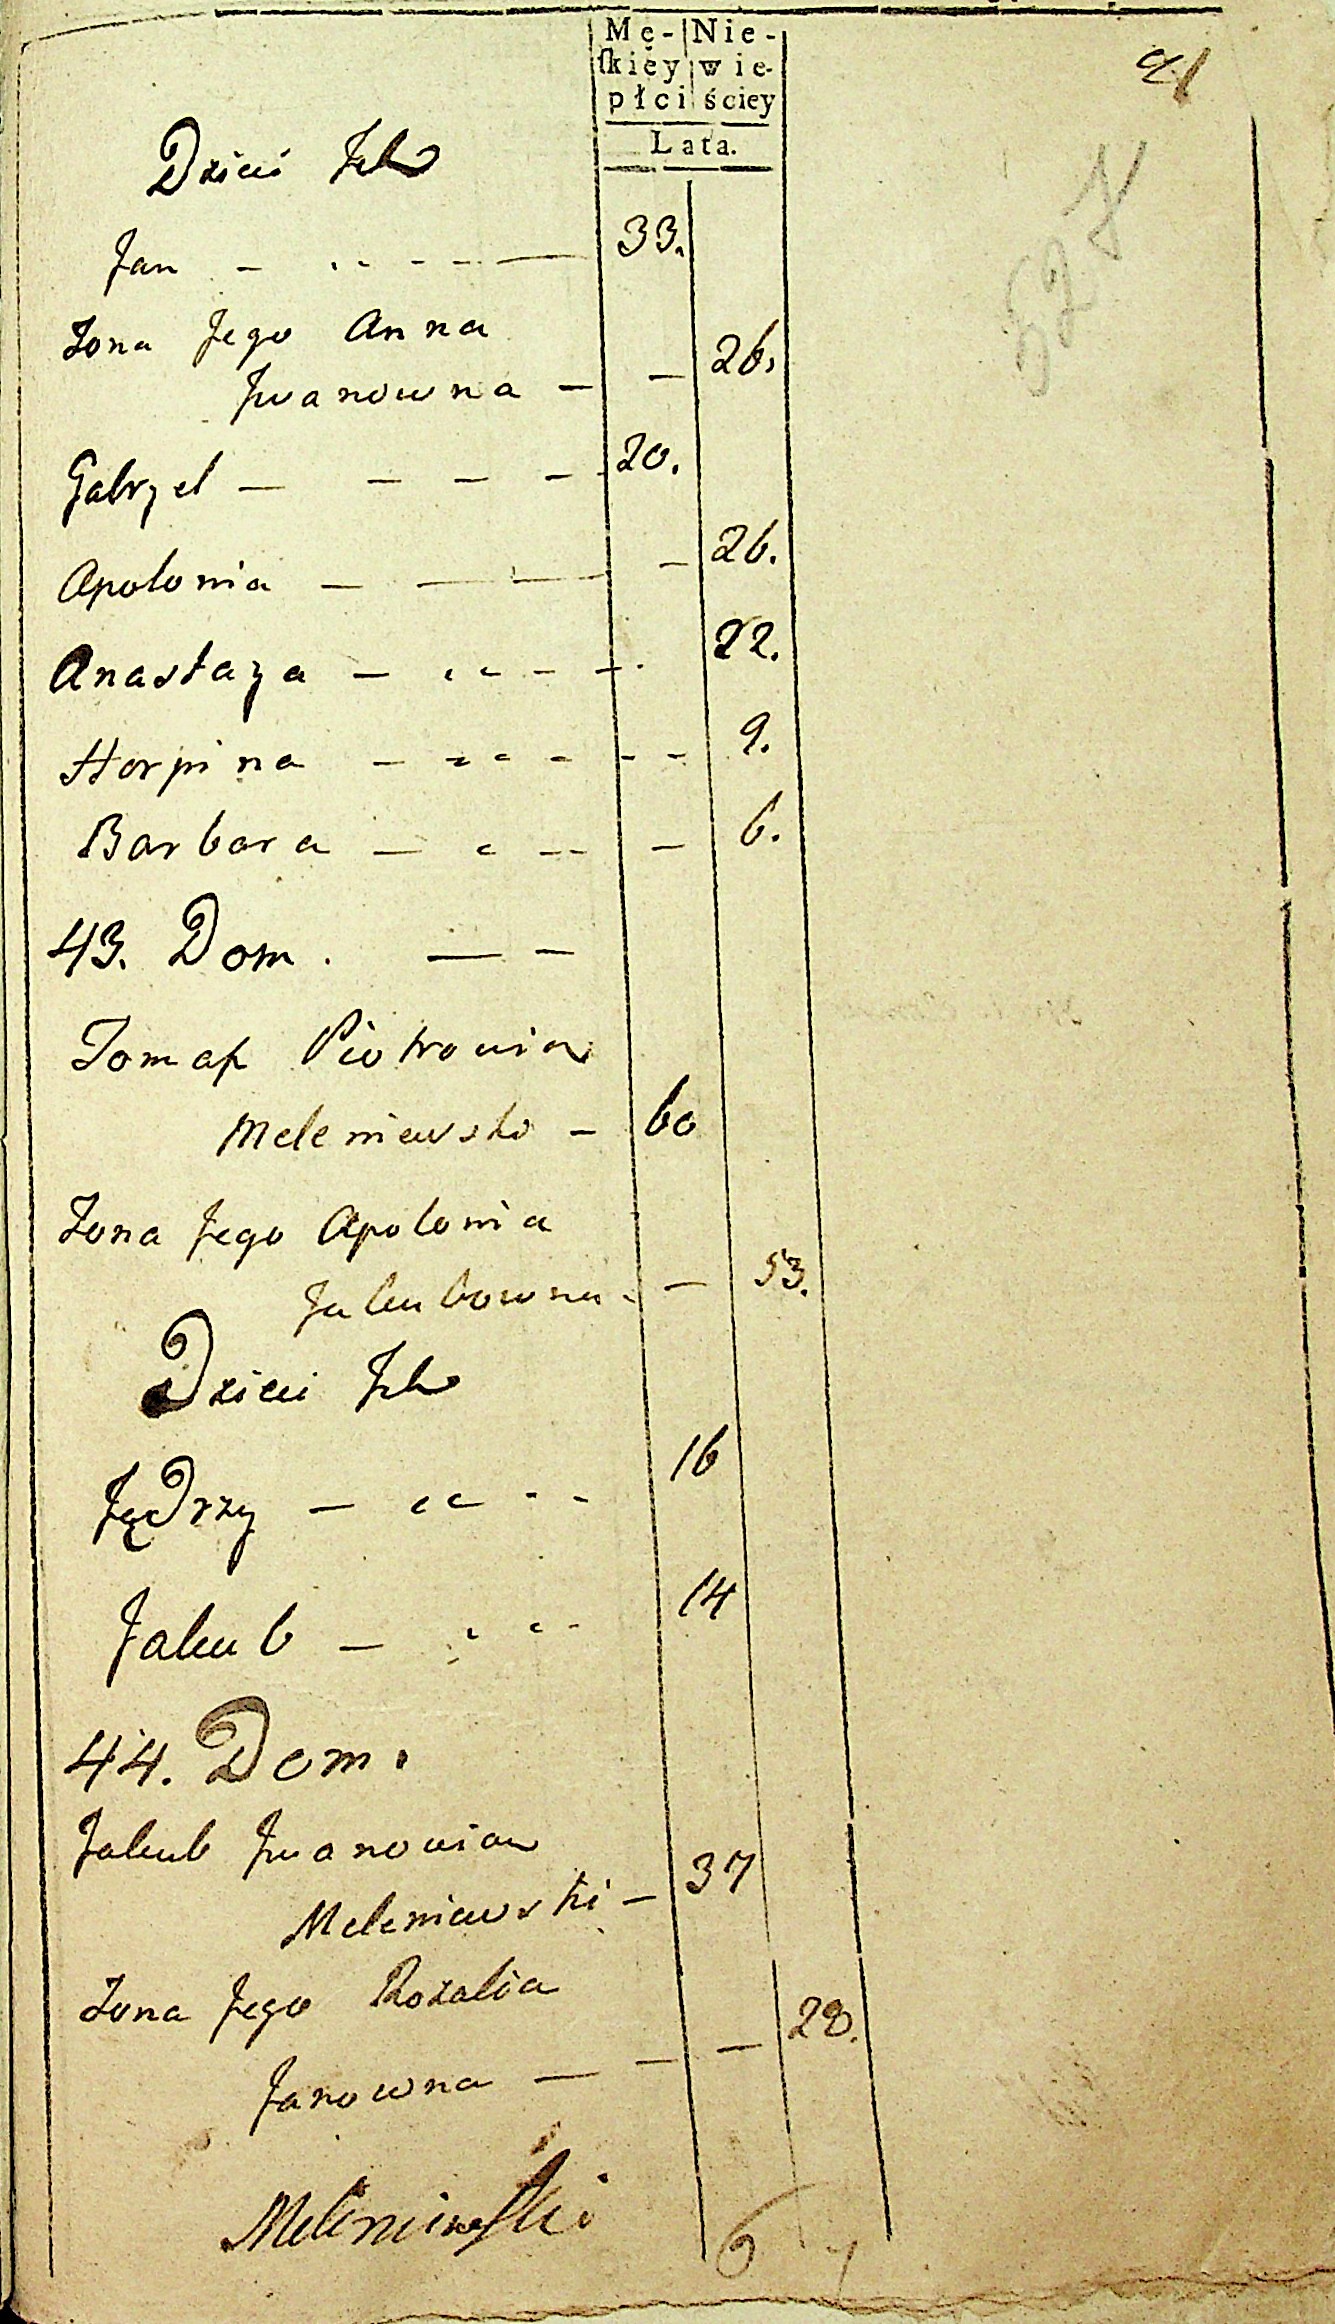 Mę- Nie-
ſkiey wie-
płci ściey
Lata.
21
527
Dzieci Ich
Jan - - - - 33.
Zona Jego Anna
Jwanowna - - 26.
Gabryel - - - - 20.
Apolonia - - - - 26.
Anastazya - - - - 22.
Horpina - - - - - - 9.
Barbara - - - - - 6.
43. Dom. - -
Tomasz Piotrowicz
Meleniewski - 60
Zona Jego Apolonia
Jakubowna - - 53.
Dzieci Ich
Jędrzy - - - - - 16
Jakub - - - - 14
44. Dom.
Jakub Jwanowicz
Meleniewski - 37
Zona Jego Rozalia
Janowna - - - 28.
Meleniewski
6 7